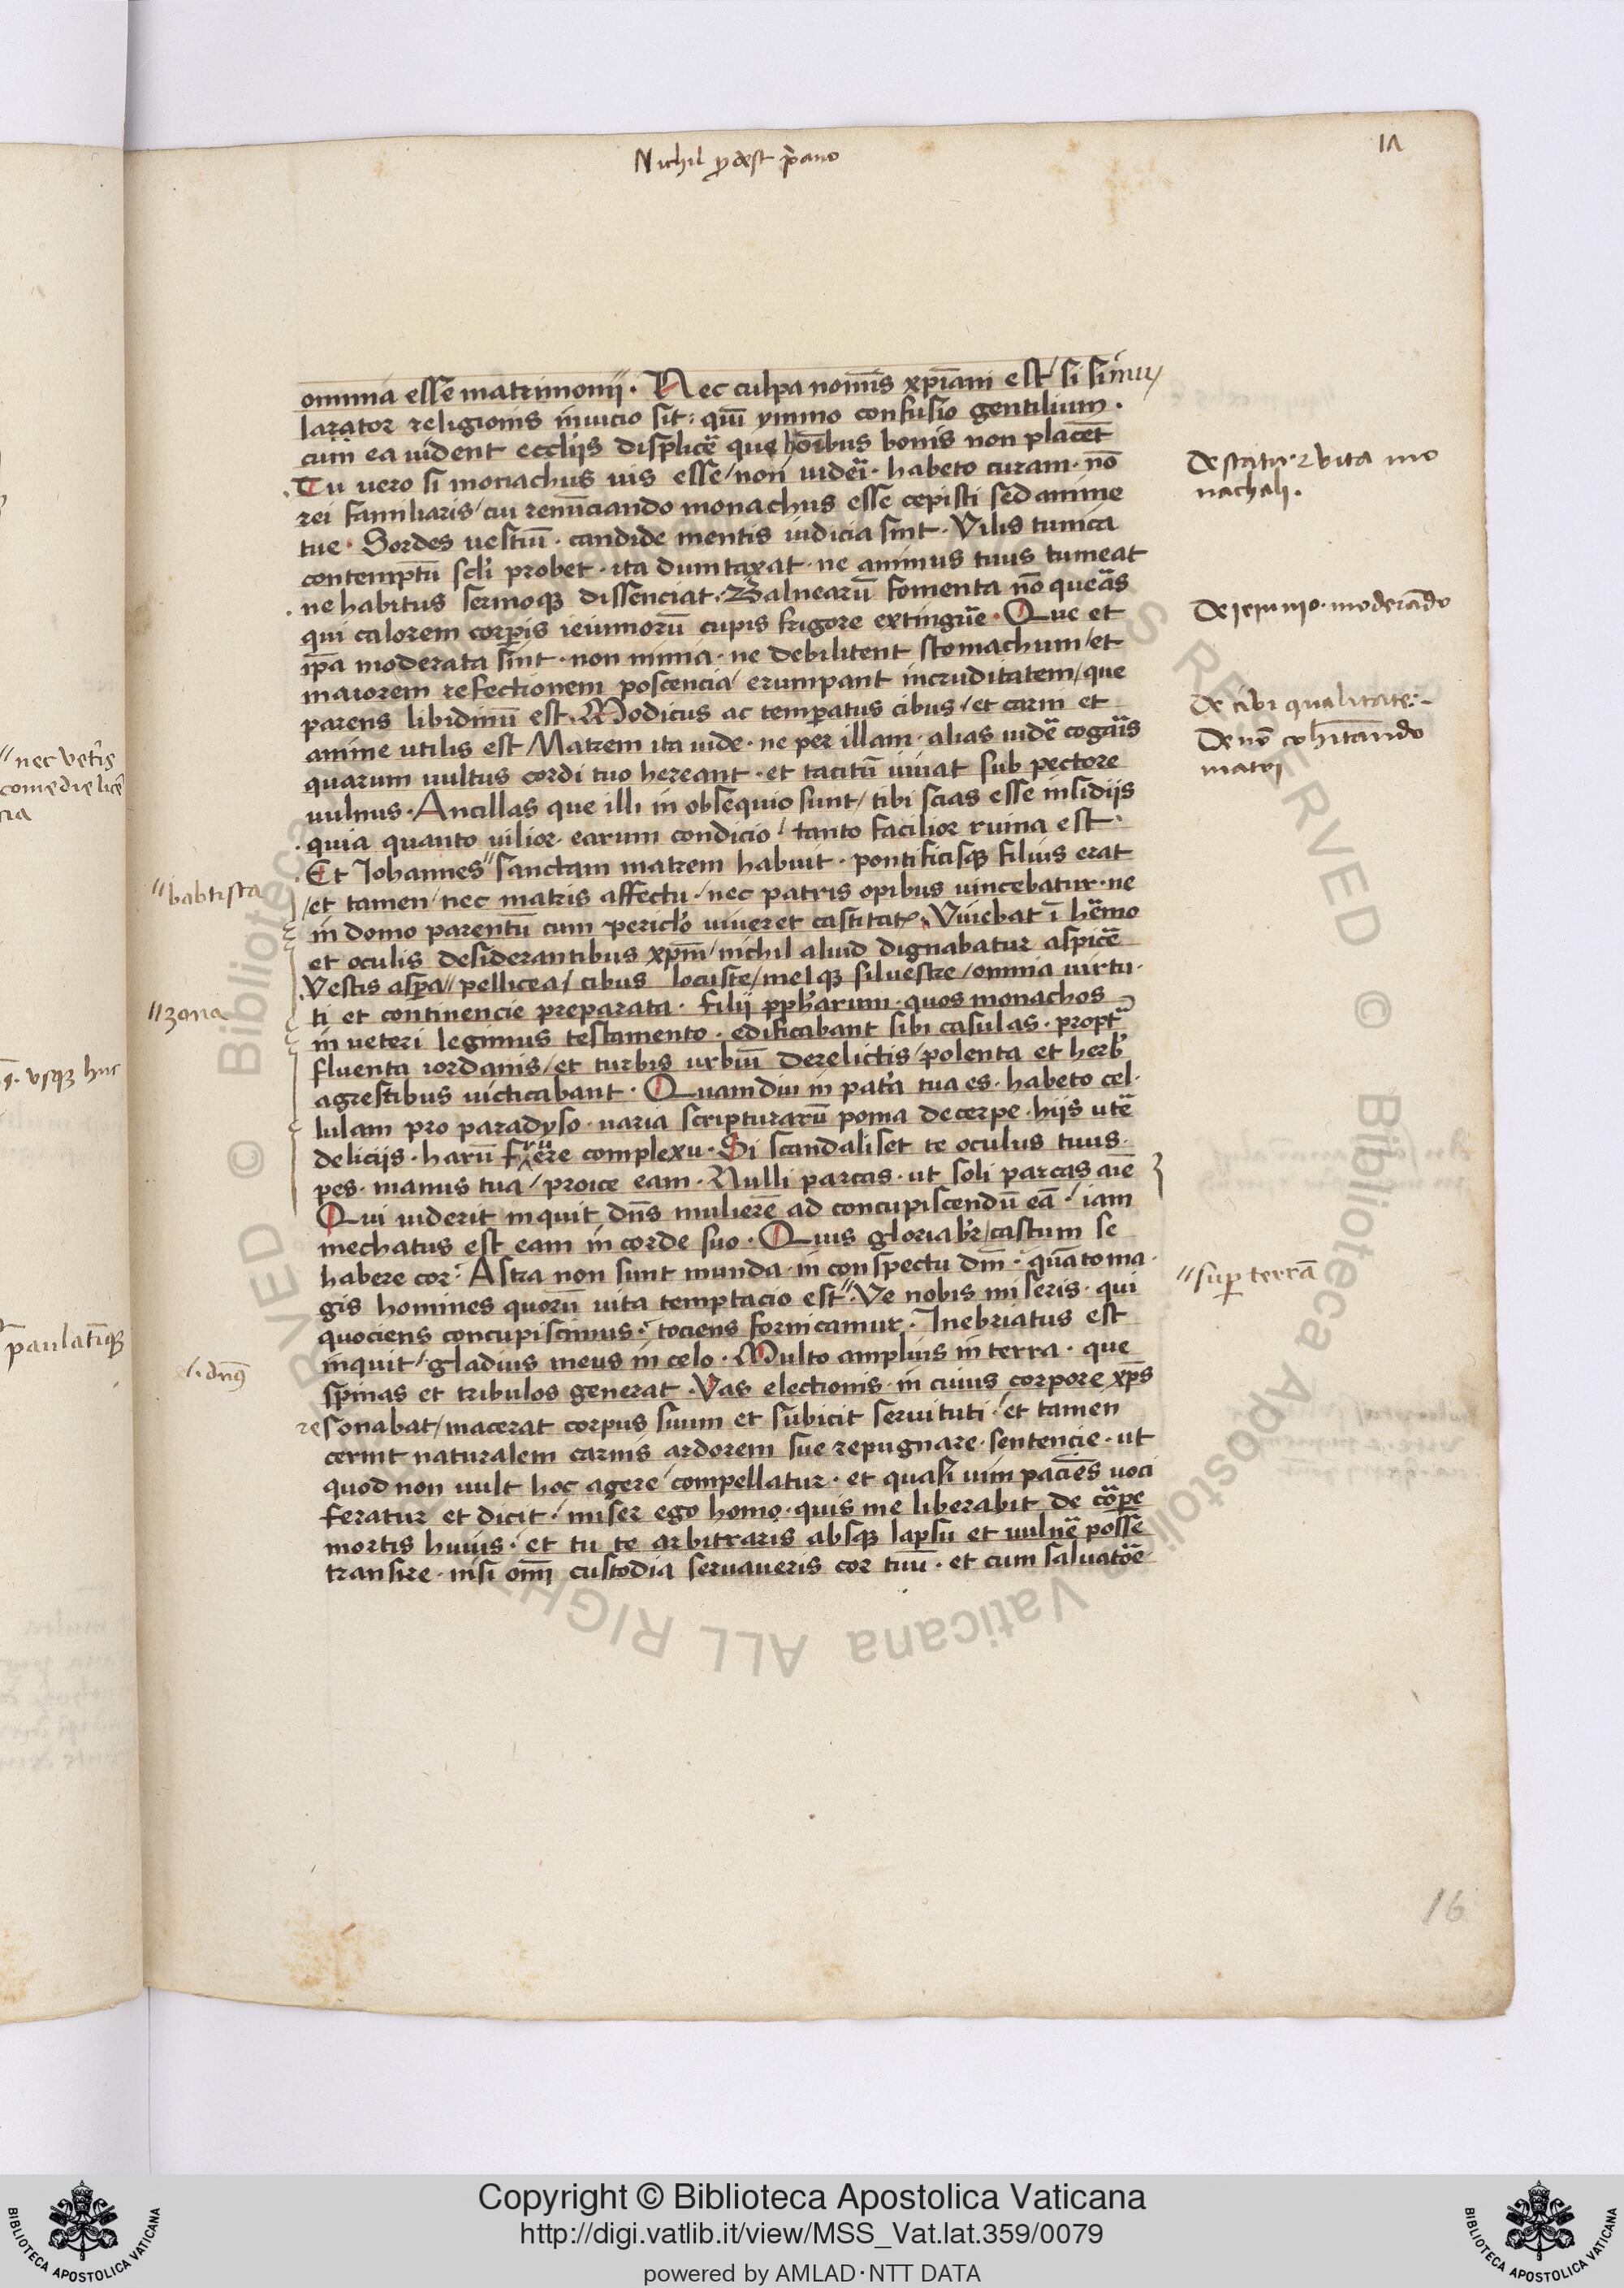 Nichil ꝓdest p̄ano
omnia esse matrimonij. Nec culpa nom̄is xp̄iani est/ si simu/
larator religionis in uicio sit: qui̅ ymmo confusio gentilium.
cum ea uident ecclijs displice̅ que ho̅ibus bonis non place̅t
Tu uero si monachus uis esse/ non uide̅i. habeto curam. no̅
rei familiaris/ cui renu̅ciando monachus esse cepisti sed anime
tue. Sordes uestiu̅. candide mentis indicia sint. Vilis tunica
contemptu̅ scl̓i probet. ita dumtaxat. ne animus tuus tumeat
. ne habitus sermoqꝫ dissenciat. Balnearu̅ fomenta no̅ quera̅s
qui calorem corꝑis ieiunioru̅ cupis frigore extingu̅e. Que et
ip̄a moderata sint. non nimia. ne debilitent stomachum/ et
maiorem refectionem poscencia/ erumpant in cruditatem/ que
parens libidinu̅ est. Modicus ac temꝑatus cibus/ et carni et
anime utilis est Matrem ita uide. ne per illam. alias uide̅ coga̅is
quarum uultus cordi tuo hereant. et tacitu̅ uiuat sub pectore
uulnus. Ancillas que illi in obsequio sunt/ tibi scias esse insidijs
. quia quanto uilior. earum condicio/ tanto facilior ruina est.
. Et Johannes" sanctam matrem habuit. pontificisqꝫ filius erat
/et tamen/ nec matris affectu/ nec patris opibus uincebatur. ne
in domo parentu̅ cum pericl̓o uiueret castitat. Viuebat i̅ he̅mo
et oculis desiderantibus xp̄m/ nichil aliud dignabatur aspice̅
. Vestis asꝑa" pellicea/ cibus locuste/ melqꝫ siluestre/ omnia uirtu-
ti et continencie preparata. filij ꝓph̓arum. quos monachos
in ueteri legimus testamento. edificabant sibi casulas. propt̅
fluenta iordanis/ et turbis urbiu̅ derelictis/ polenta et herb̓
agrestibus uictitabant. Quamdiu in pat̓a tua es. habeto cel-
lulam pro paradyso. uaria scripturaru̅ poma decerpe. hijs ute̅
delicijs. haru̅ fruere complexu. Si scandaliset te oculus tuus.
pes. manus tua/ proice eam. Nulli parcas. ut soli parcas aie̅
Qui uiderit inquit dn̄s muliere̅ ad concupiscendu̅ ea̅/ iam
mechatus est eam in corde suo. Quis gloriab̓r/ castum se
habere cor: Astra non sunt munda. in conspectu dn̅i. qua̅to ma-
gis homines quoru̅ uita temptacio est". Ve nobis miseris. qui
quociens concupiscimus. tociens fornicamur. Inebriatus est
inquit/ gladius meus in celo. Multo amplius in terra. que
spinas et tribulos generat. Vas electionis. in cuius corpore xp̄s
resonabat/ macerat corpus suum et subicit seruituti/ et tamen
cernit naturalem carnis ardorem sue repugnare. sentencie. ut
quod non uult hoc agere/ compellatur. et quasi uim pacie̅s uoci
feratur et dicit/ miser ego homo. quis me liberabit de co̅ꝑe
mortis huius. et tu te arbitraris absqꝫ lapsu et uulne̅ posse
transire. nisi om̅i custodia seruaueris cor tuu̅. et cum saluato̅e
De statu ⁊ vita mo
nachali.
De ieiunio. modera̅do
De cibi qualitate:-
De no̅ cohita̅ndo
matri
"sup terra̅
"babtista
"zona
.i. dn̄s
"nec vet̓is
comedie lice̅
cia
vsqꝫ huc
paulati̅qꝫ
16
Copyright © Biblioteca Apostolica Vaticana
http://digi.vatlib.it/view/MSS_Vat.lat.359/0079
powered by AMLAD·NTT DATA
BIBLIOTECA APOSTOLICA VATICANA
BIBLIOTECA APOSTOLICA VATICANA
© Biblioteca Apostolica Vaticana ALL RIGHTS RESERVED © Biblioteca Apostolica Vaticana ALL RIGHTS RESERVED